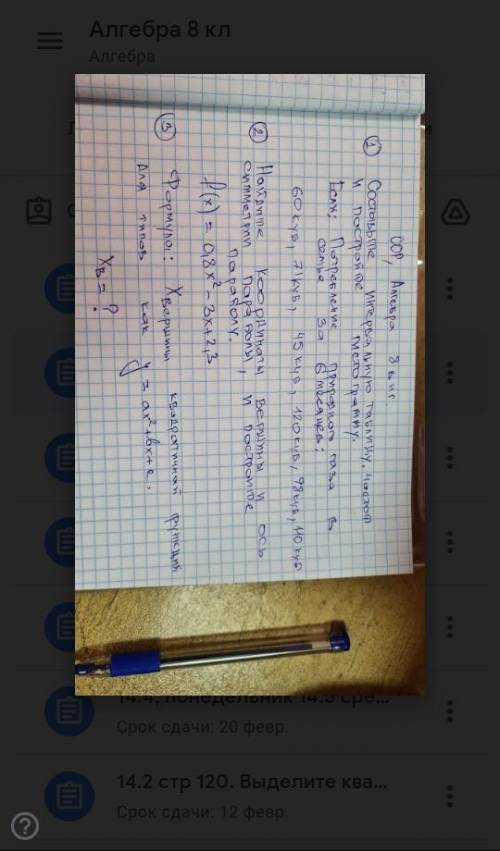 Алгебра 8 кл
Алгебра
СОР, Алгебра 8 кл
① Составьте интервальную таблицу частот
и постройте гистограмму.
Потребление природного газа в
семье за 6 месяцев:
60 куб, 71 куб, 45 куб, 120 куб, 98 куб, 110 куб
② Найдите координаты вершины и ось
симметрии параболы, и постройте
параболу.
f(x) = 0,8x² - 3x + 2,3
③ Формула: X вершины квадратичной функции
для типов как y = ax² + bx + c.
Xв = ?
14.4, понедельник 14.5 сре...
Срок сдачи: 20 февр.
14.2 стр 120. Выделите ква...
Срок сдачи: 12 февр.
?